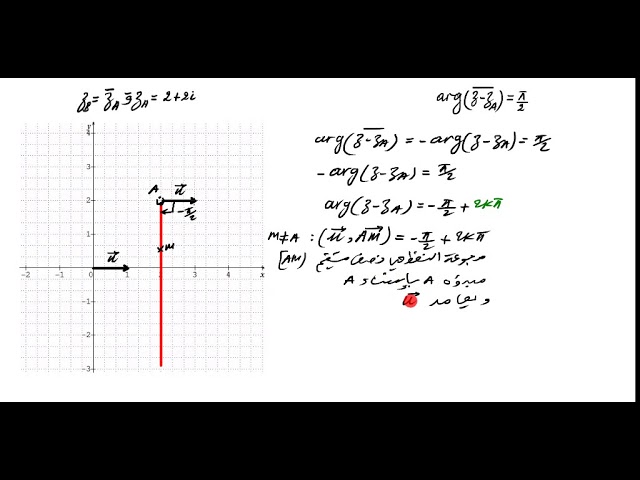 z_B = z̄_A و z_A = 2+2i
arg(\overline{z-z_A}) = π/2
arg(\overline{z-z_A}) = -arg(z-z_A) = π/2
-arg(z-z_A) = π/2
arg(z-z_A) = -π/2 + 2kπ
M≠A : (u⃗, AM⃗) = -π/2 + 2kπ
مجموعة النقط هي نصف مستقيم [AM)
مبدؤه A باستثناء A
و يعامد u⃗
y
4
3
2
1
0
-1
-2
-3
-2 -1 1 2 3 4 x
A u⃗
-π/2
M
u⃗